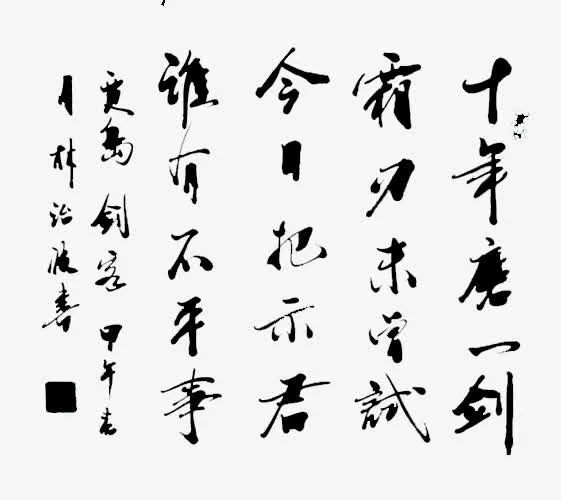 十年磨一剑
霜刃未曾試
今日把示君
誰有不平事
贾岛 剑客 甲午春
月 林治波書